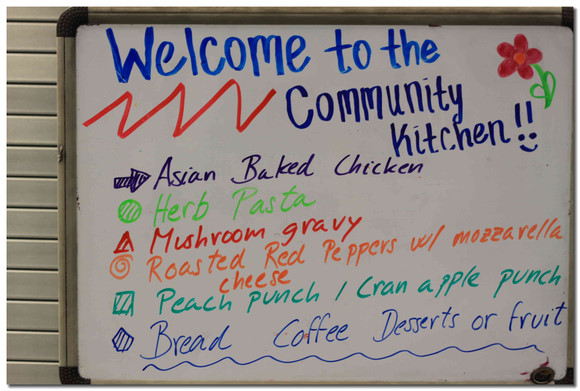 Welcome to the
Community
Kitchen!!
Asian Baked Chicken
Herb Pasta
Mushroom gravy
Roasted Red Peppers w/ mozzarella
cheese
Peach punch / Cran apple punch
Bread Coffee Desserts or fruit